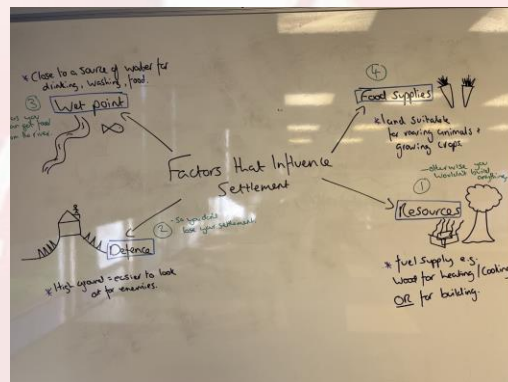 * Close to a source of water for
drinking, washing, food.
③ Wet point
as you
can get food
in the river.
④
Food supplies
* land suitable
for rearing animals +
growing crops
Factors that Influence
Settlement
- otherwise you
wouldn't build
anything
①
Resources
* fuel supply e.g.
Wood for heating/Cooking
OR for building.
② - So you don't
lose your settlement
Defence
* High ground = easier to look
out for enemies.